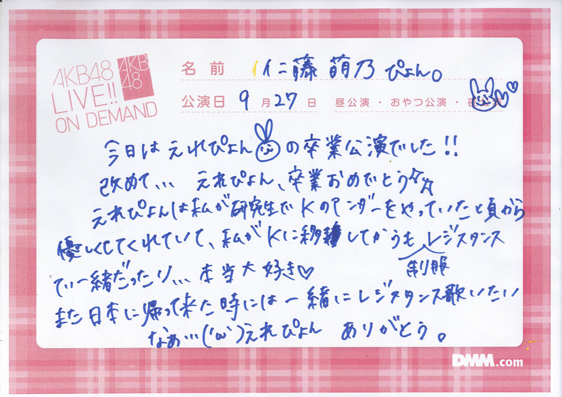 AKB48
LIVE!!
ON DEMAND
AKB
48
名前 仁藤萌乃ぴょん。
公演日 9月27日 昼公演・おやつ公演・夜
今日はえれぴょんの卒業公演でした!!
改めて... えれぴょん、卒業おめでとう
えれぴょんは私が研究生でKのアンダーをやっていた頃から
優しくしてくれていて、私がKに移籍してからも レジスタンス
制服
で一緒だったり... 本当大好き♡
また日本に帰って来た時には一緒にレジスタンス歌いたい
なぁ...('ω')えれぴょん ありがとう。
DMM.com